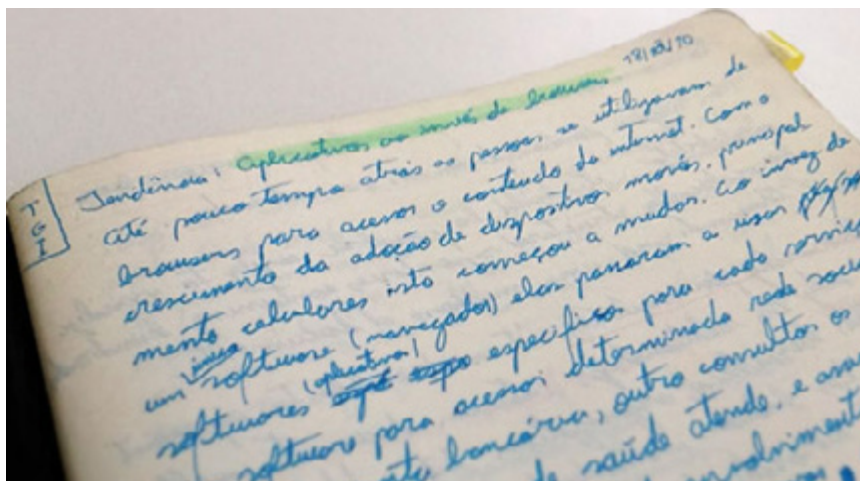 18/08/10
TGI
Tendência: aplicativos ao invés de browsers
até pouco tempo atrás as pessoas se utilizavam de
browsers para acessar o conteúdo da internet. Com o
crescimento da adoção de dispositivos móveis, principal
mente celulares isto começou a mudar. Ao invez de
um único software (navegador) elas passaram a usar
softwares (aplicativos) específicos para cada serviço
software para acessar determinada rede soci
bancária, outro consultar os
de saúde atende, e assi